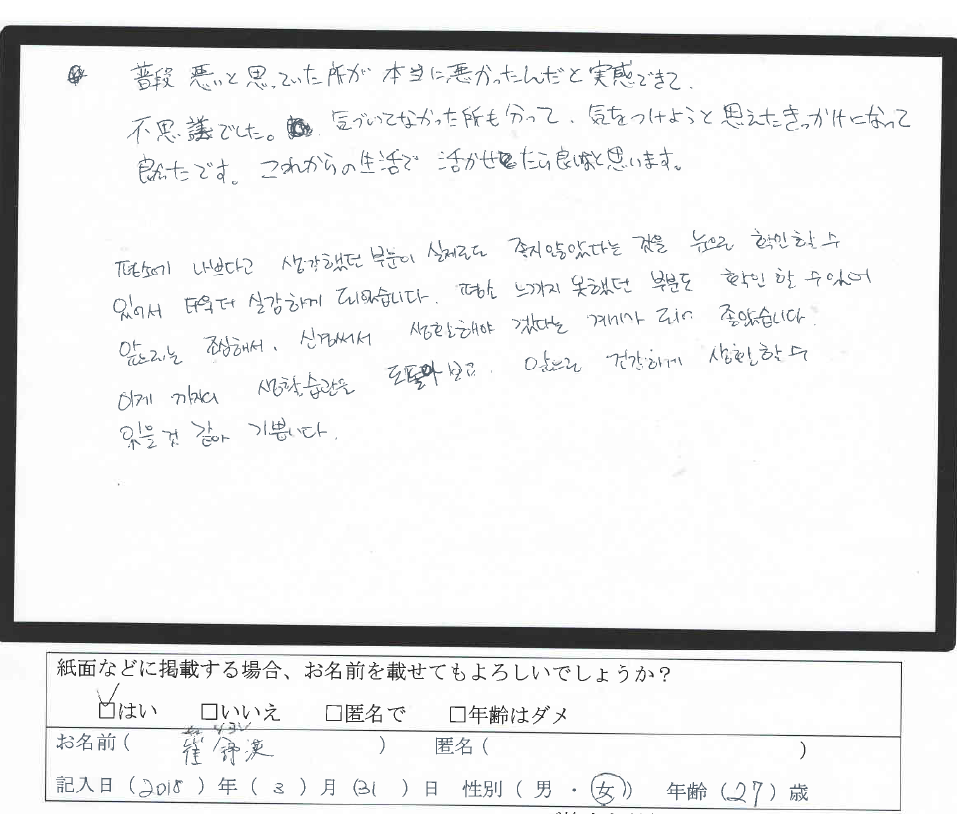 普段 悪いと思っていた所が 本当に悪かったんだと実感できて、
不思議でした。 気づいてなかった所も分って、気をつけようと思えたきっかけになって
良かったです。これからの生活で 活かせたら良いなと思います。
평소에 나쁘다고 생각했던 부분이 실제로도 좋지않았다는 것을 눈으로 확인할 수
있어서 더욱더 실감하게 되었습니다. 평소 느끼지 못했던 부분도 확인 할 수있어
앞으로는 조심해서, 신경써서 생활해야 겠다는 계기가 되어 좋았습니다.
이제 까지의 생활습관을 되돌아 보고, 앞으로 건강하게 생활할 수
있을것 같아 기쁩니다.
紙面などに掲載する場合、お名前を載せてもよろしいでしょうか？
☑はい □いいえ □匿名で □年齢はダメ
お名前( 崔 ) 匿名( )
記入日(2018)年(3)月(31)日 性別(男・女) 年齢(27)歳